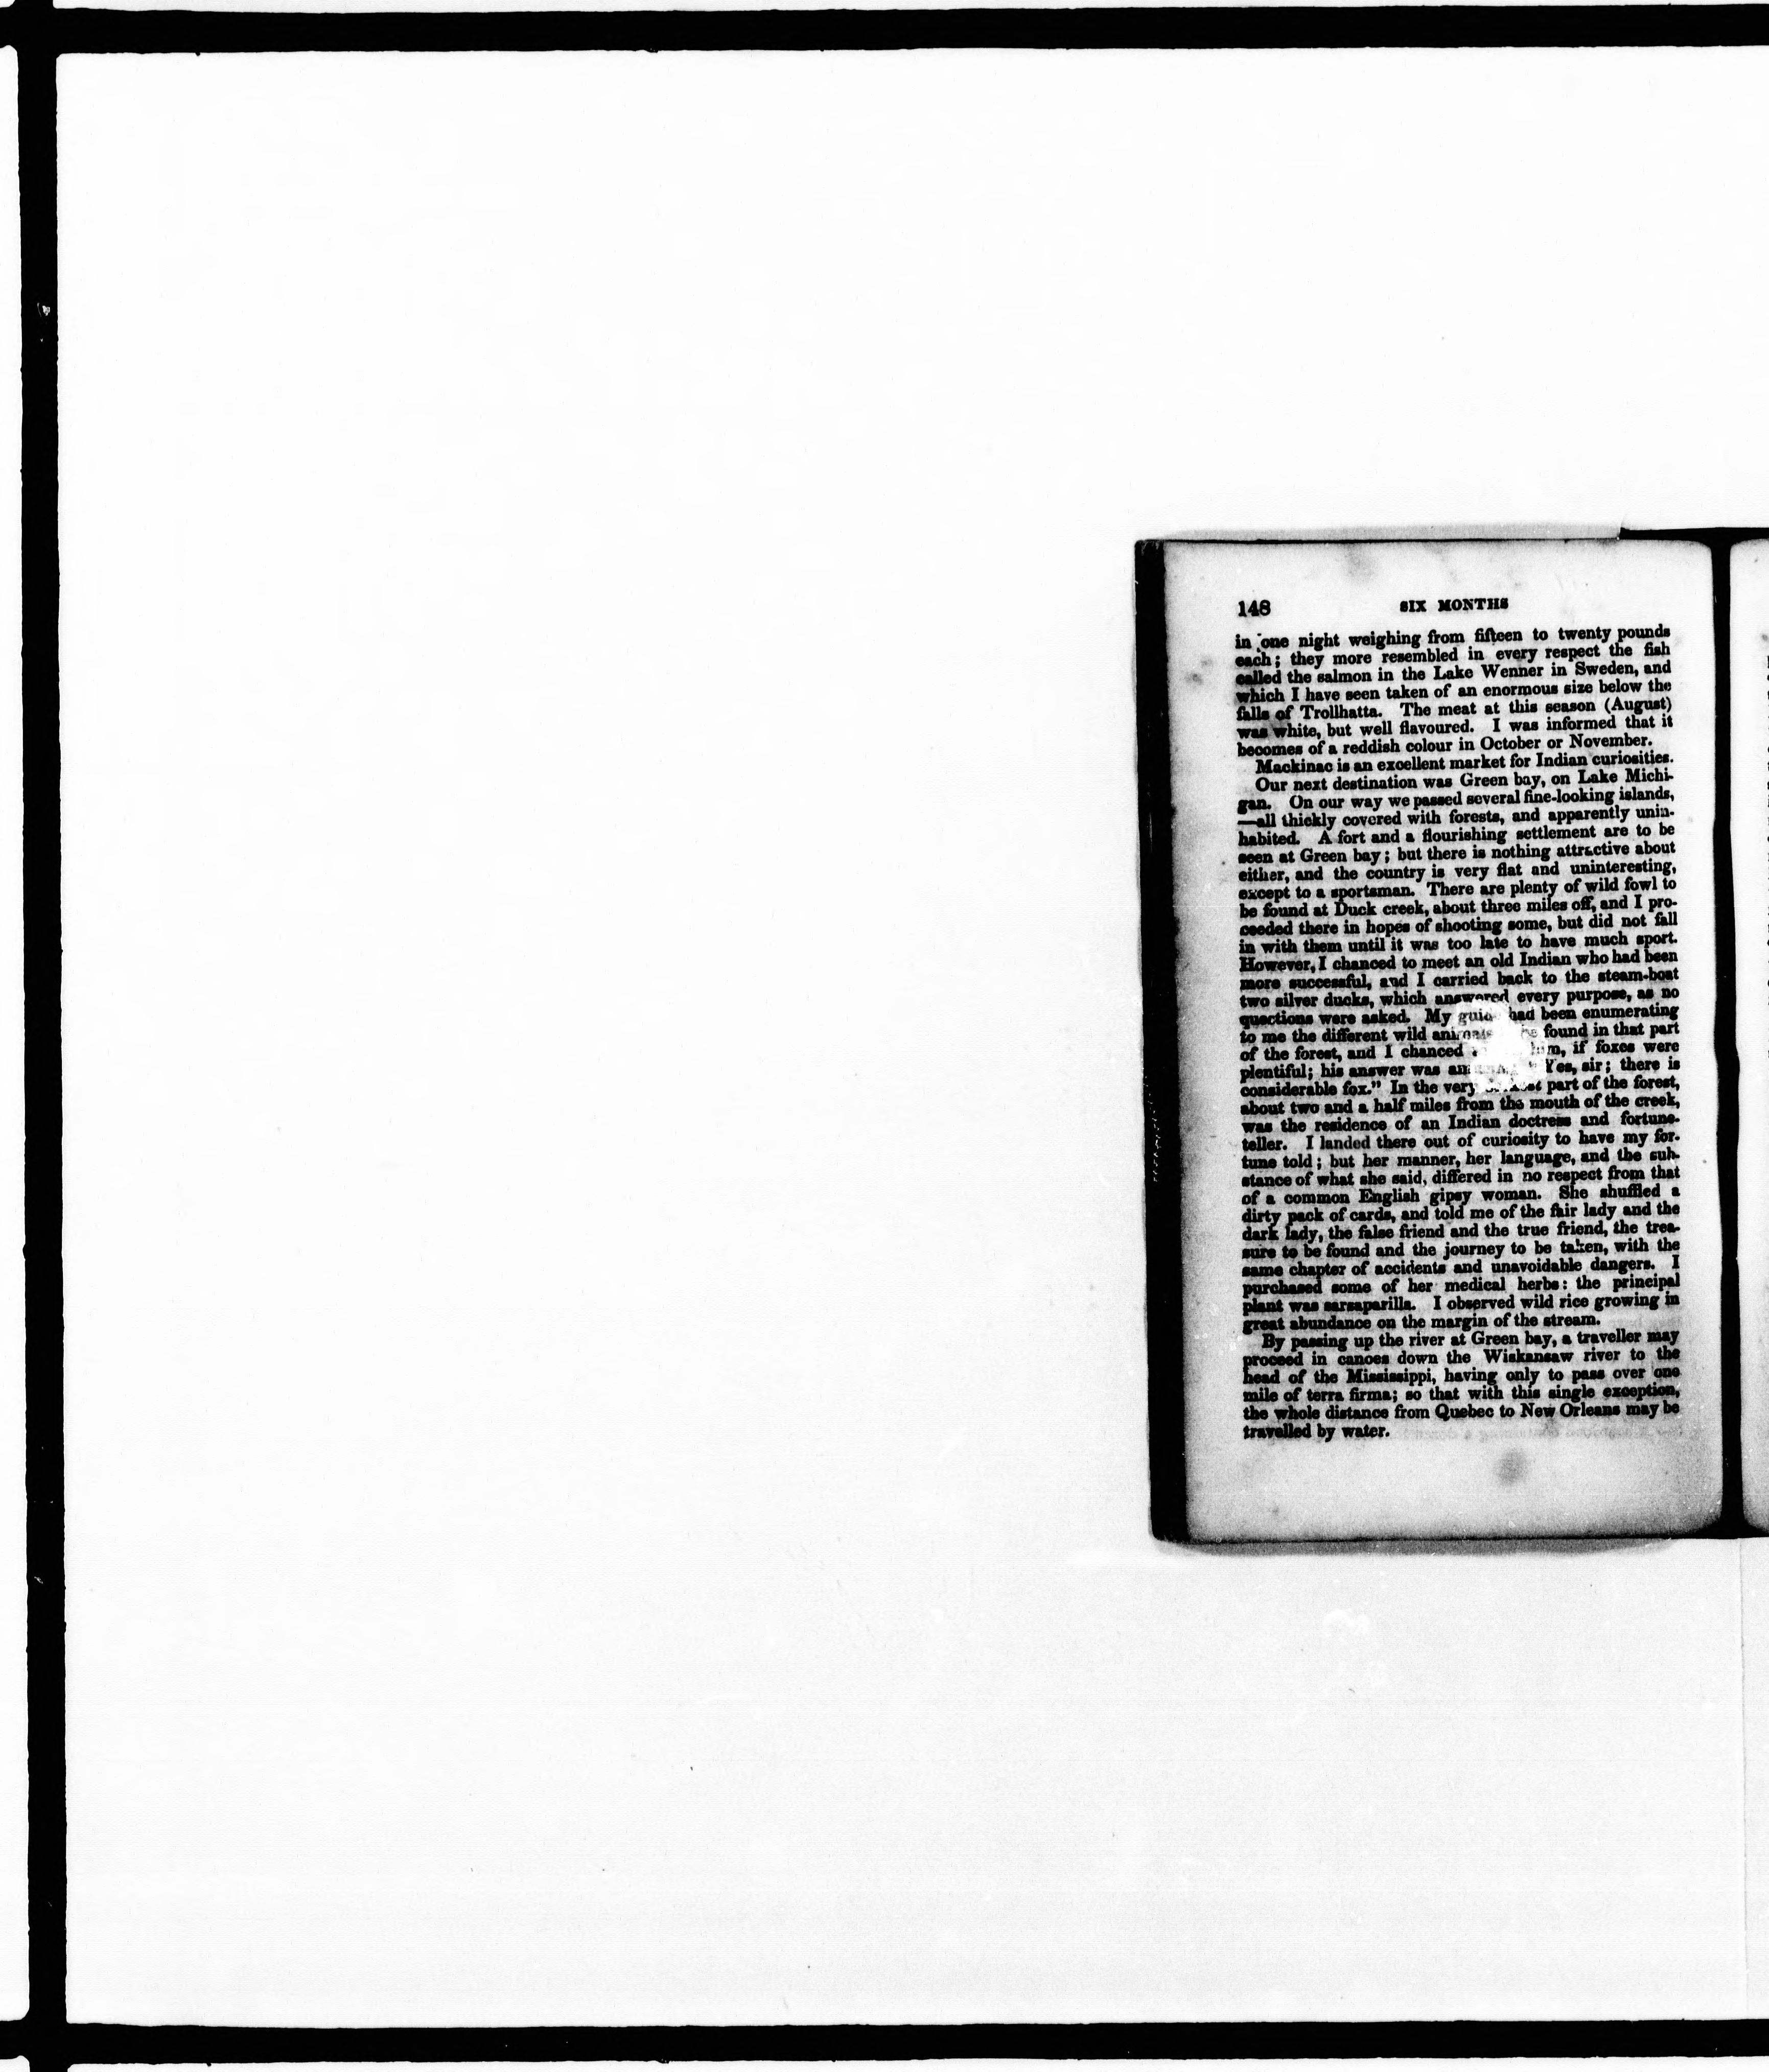 148 SIX MONTHS
in one night weighing from fifteen to twenty pounds
each; they more resembled in every respect the fish
called the salmon in the Lake Wenner in Sweden, and
which I have seen taken of an enormous size below the
falls of Trollhatta. The meat at this season (August)
was white, but well flavoured. I was informed that it
becomes of a reddish colour in October or November.
Mackinac is an excellent market for Indian curiosities.
Our next destination was Green bay, on Lake Michi-
gan. On our way we passed several fine-looking islands,
—all thickly covered with forests, and apparently unin-
habited. A fort and a flourishing settlement are to be
seen at Green bay; but there is nothing attractive about
either, and the country is very flat and uninteresting,
except to a sportsman. There are plenty of wild fowl to
be found at Duck creek, about three miles off, and I pro-
ceeded there in hopes of shooting some, but did not fall
in with them until it was too late to have much sport.
However, I chanced to meet an old Indian who had been
more successful, and I carried back to the steam-boat
two silver ducks, which answered every purpose, as no
questions were asked. My guide had been enumerating
to me the different wild animals be found in that part
of the forest, and I chanced him, if foxes were
plentiful; his answer was "Yes, sir; there is
considerable fox." In the very part of the forest,
about two and a half miles from the mouth of the creek,
was the residence of an Indian doctress and fortune-
teller. I landed there out of curiosity to have my for-
tune told; but her manner, her language, and the sub-
stance of what she said, differed in no respect from that
of a common English gipsy woman. She shuffled a
dirty pack of cards, and told me of the fair lady and the
dark lady, the false friend and the true friend, the trea-
sure to be found and the journey to be taken, with the
same chapter of accidents and unavoidable dangers. I
purchased some of her medical herbs: the principal
plant was sarsaparilla. I observed wild rice growing in
great abundance on the margin of the stream.
By passing up the river at Green bay, a traveller may
proceed in canoes down the Wiskansaw river to the
head of the Mississippi, having only to pass over one
mile of terra firma; so that with this single exception,
the whole distance from Quebec to New Orleans may be
travelled by water.